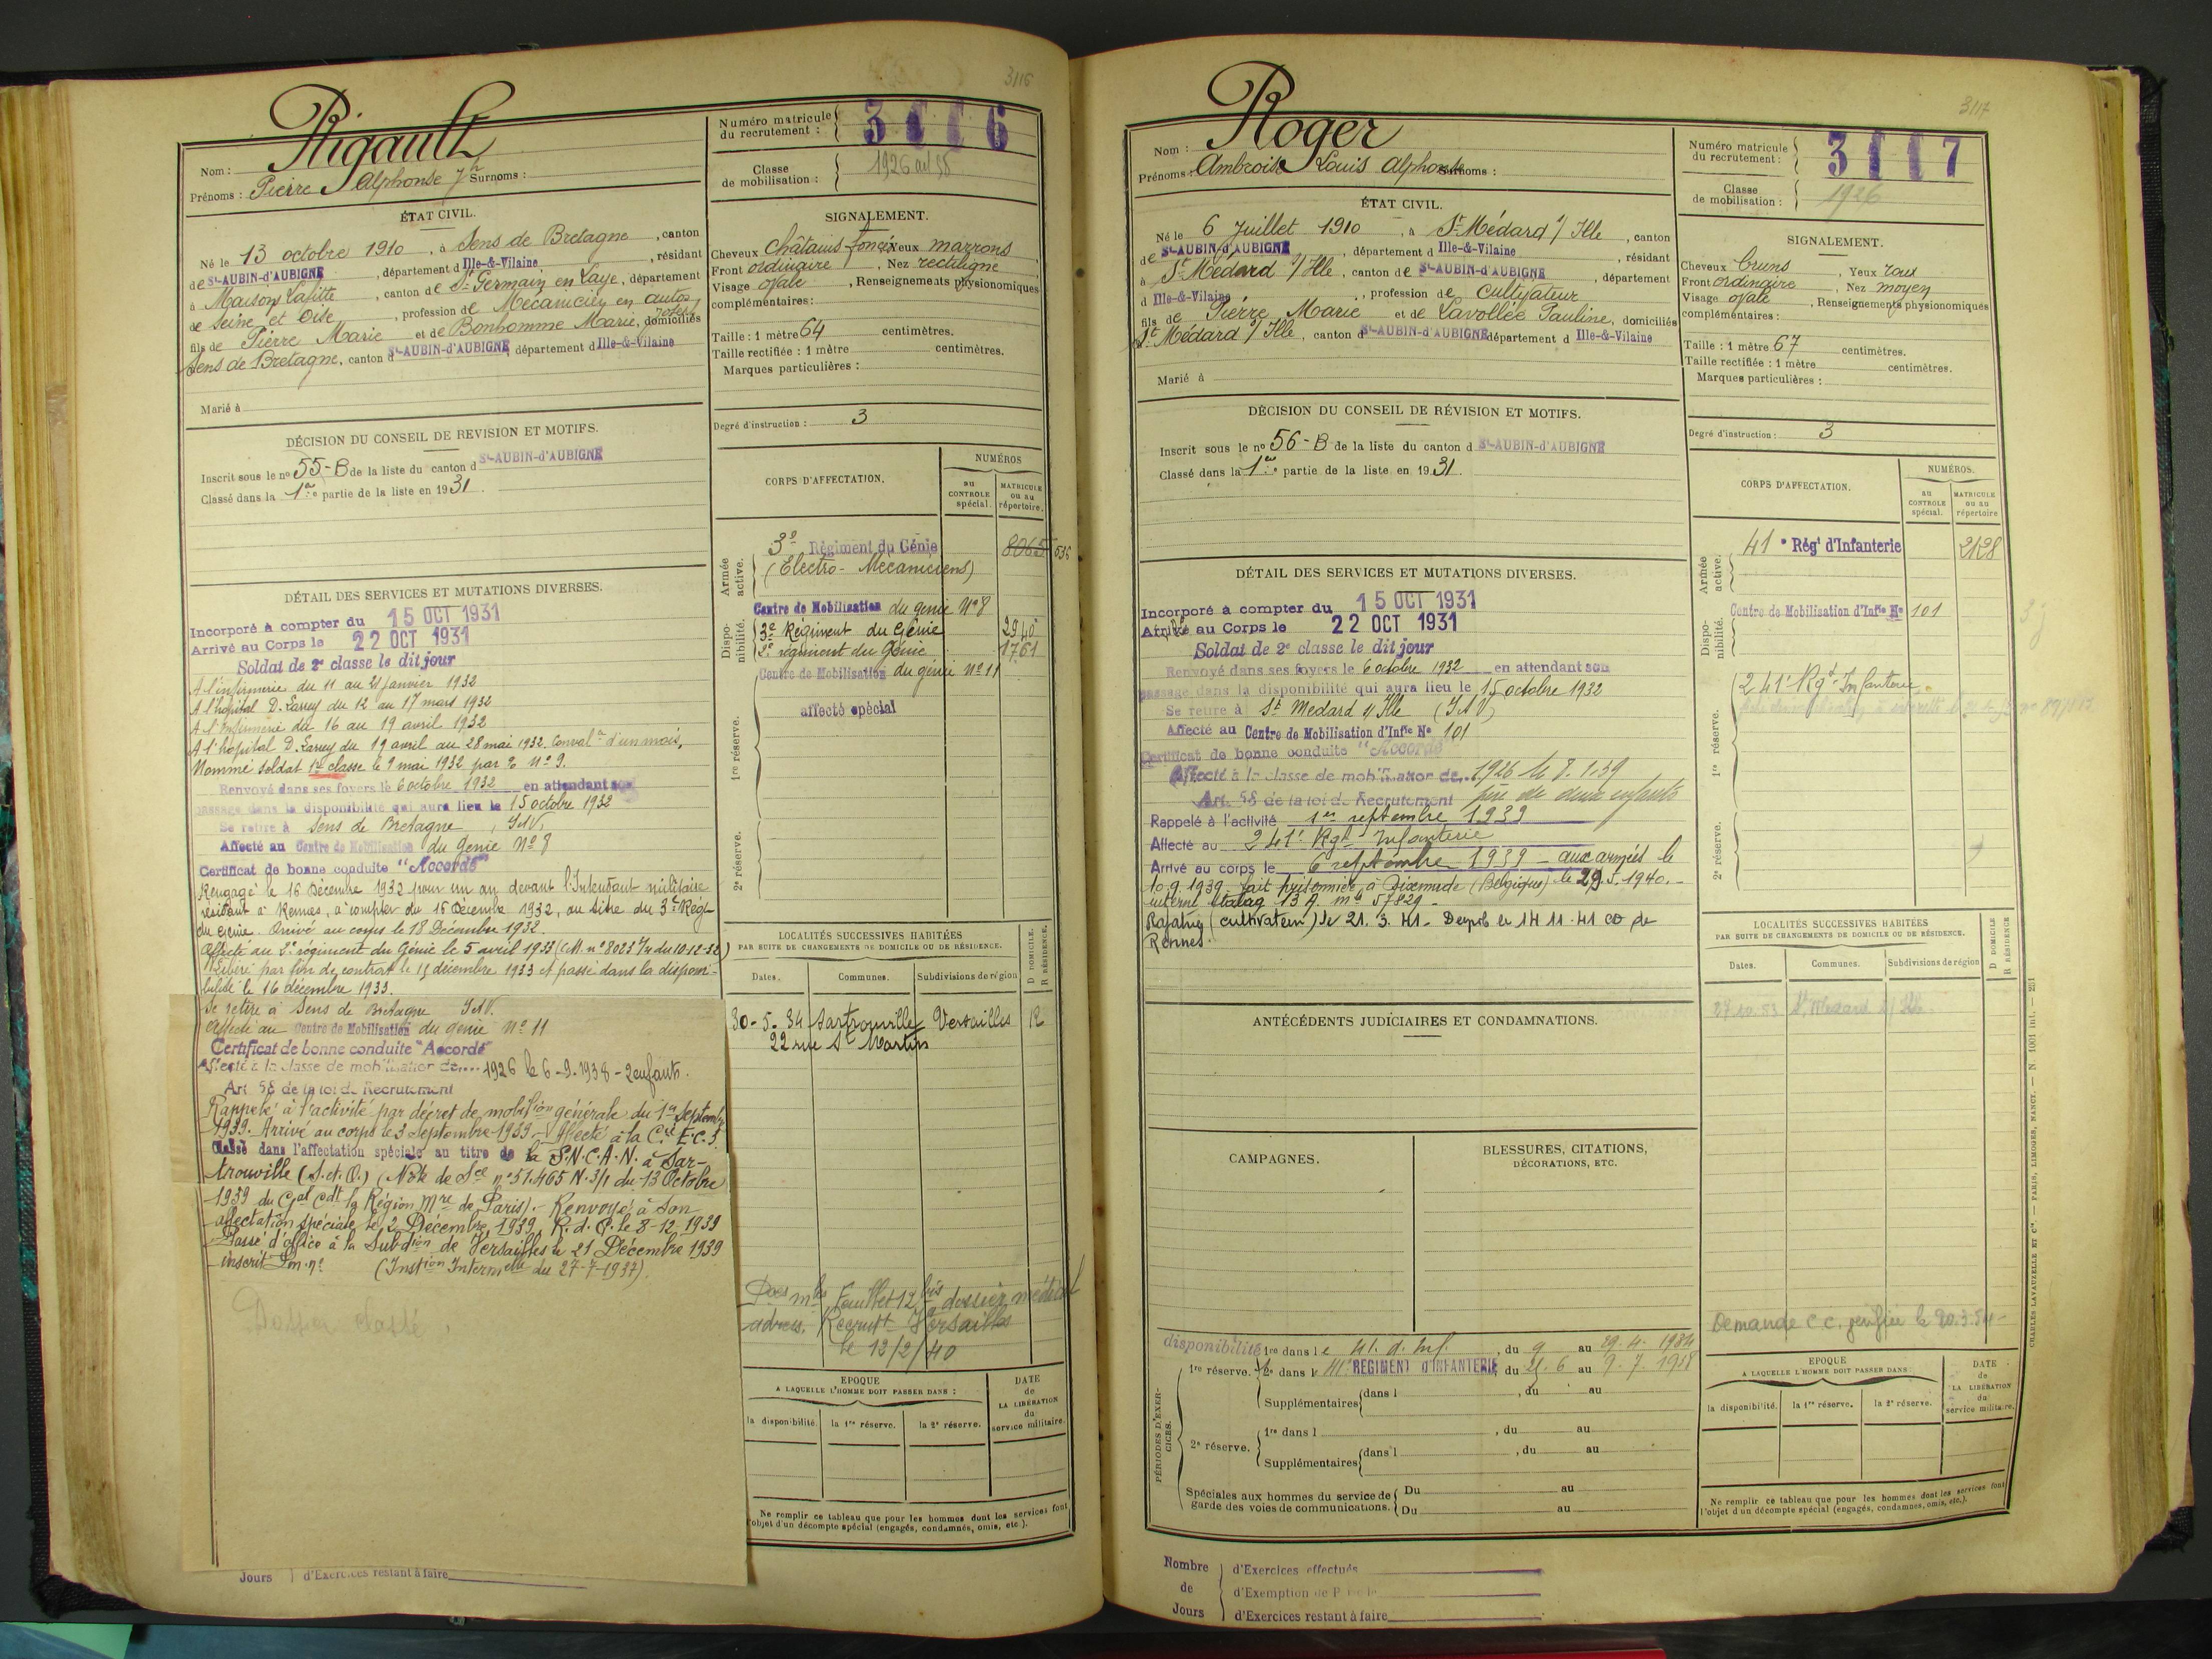 3116
Rigault
Nom :
Prénoms : Pierre Alphonse Jh Surnoms :
ÉTAT CIVIL.
Né le 13 octobre 1910, à Sens de Bretagne, canton
de St-AUBIN-d'AUBIGNÉ, département d Ille-&-Vilaine, résidant
à Maisons Lafitte, canton de St Germain en Laye, département
de Seine et Oise, profession de Mécanicien en autos
fils de Pierre Marie et de Bonhomme Marie, Joseph, domiciliés
Sens de Bretagne, canton St-AUBIN-d'AUBIGNÉ, département d Ille-&-Vilaine
Marié à
DÉCISION DU CONSEIL DE REVISION ET MOTIFS.
Inscrit sous le no 55-B de la liste du canton d St-AUBIN-d'AUBIGNÉ
Classé dans la 1ère partie de la liste en 1931.
DÉTAIL DES SERVICES ET MUTATIONS DIVERSES.
Incorporé à compter du 15 OCT 1931
Arrivé au Corps le 22 OCT 1931
Soldat de 2e classe le dit jour
A l'infirmerie du 11 au 21 janvier 1932
A l'hôpital D. Larrey du 12 au 17 mars 1932
A l'Infirmerie du 16 au 19 avril 1932
A l'hôpital D. Larrey du 19 avril au 28 mai 1932. Convalce d'un mois,
Nommé soldat 1re classe le 9 mai 1932 par % No 9.
Renvoyé dans ses foyers le 6 octobre 1932 en attendant son
passage dans la disponibilité qui aura lieu le 15 octobre 1932
Se retire à Sens de Bretagne, I&V.
Affecté au Centre de Mobilisation du Génie No 8
Certificat de bonne conduite "Accordé"
Rengagé le 16 Décembre 1932 pour un an devant l'Intendant militaire
résidant à Rennes, à compter du 16 Décembre 1932, au titre du 3e Régt
du Génie. Arrivé au corps le 18 Décembre 1932
Affecté au 2e régiment du Génie le 5 avril 1933 (M. no 8023 du 10-12-32)
Libéré par fin de contrat le 15 décembre 1933 et passé dans la disponi-
bilité le 16 décembre 1933.
Se retire à Sens de Bretagne I&V.
Affecté au Centre de Mobilisation du génie no 11
Certificat de bonne conduite "Accordé"
Affecté à la classe de mobilisation de.... 1926 le 6-9-1938 - 2 enfants.
Art. 58 de la loi de Recrutement
Rappelé à l'activité par décret de mobilion générale du 1er Septembre
1939. Arrivé au corps le 3 Septembre 1939 - Affecté à la Cie E.C.S.
Classé dans l'affectation spéciale au titre de la S.N.C.A.N. à Sar-
trouville (S.et.O.) (Note de Sce no 51.465 N.3/1 du 13 Octobre
1939 du Gal Cdt la Région Mre de Paris). - Renvoyé à son
affectation spéciale le 2 Décembre 1939. R.d.C. le 8-12-1939
Passé d'office à la Subdion de Versailles le 21 Décembre 1939
inscrit Lm. no (Instion Intermelle du 27-7-1937).
Dossier classé.
Jours d'Exercices restant à faire
Numéro matricule du recrutement : 3116
Classe de mobilisation : 1926 art 58
SIGNALEMENT.
Cheveux châtains foncés Yeux marrons
Front ordinaire, Nez rectiligne
Visage ovale, Renseignements physionomiques
complémentaires :
Taille : 1 mètre 64 centimètres.
Taille rectifiée : 1 mètre centimètres.
Marques particulières :
Degré d'instruction : 3
CORPS D'AFFECTATION.
NUMÉROS
au CONTROLE spécial.
MATRICULE ou au répertoire.
Armée active.
3e Régiment du Génie 8065 536
(Electro-Mécaniciens)
Dispo-nibilité.
Centre de Mobilisation du génie No 8
3e Régiment du Génie 2940
2e régiment du Génie 1761
Centre de Mobilisation du génie no 11
1re réserve.
affecté spécial
2e réserve.
LOCALITÉS SUCCESSIVES HABITÉES
PAR SUITE DE CHANGEMENTS DE DOMICILE OU DE RÉSIDENCE.
Dates. Communes. Subdivisions de région D DOMICILE. R RÉSIDENCE.
30-5-34 Sartrouville Versailles R
22 rue St Martin
Feuillet 12 bis dossier médical
adress. Recrutt Versailles
le 12/2/40
EPOQUE
A LAQUELLE L'HOMME DOIT PASSER DANS :
la disponibilité. la 1re réserve. la 2e réserve.
DATE de LA LIBÉRATION du service militaire.
Ne remplir ce tableau que pour les hommes dont les services font
l'objet d'un décompte spécial (engagés, condamnés, omis, etc.).
3117
Roger
Nom :
Prénoms : Ambroise Louis Alphonse Surnoms :
ÉTAT CIVIL.
Né le 6 Juillet 1910, à St-Médard s/ Ille, canton
de St-AUBIN-d'AUBIGNÉ, département d Ille-&-Vilaine, résidant
à St-Médard s/ Ille, canton de St-AUBIN-d'AUBIGNÉ, département
d Ille-&-Vilaine, profession de cultivateur
fils de Pierre Marie et de Lavollée Pauline, domiciliés
à St-Médard s/ Ille, canton d St-AUBIN-d'AUBIGNÉ département d Ille-&-Vilaine
Marié à
DÉCISION DU CONSEIL DE RÉVISION ET MOTIFS.
Inscrit sous le no 56-B de la liste du canton d St-AUBIN-d'AUBIGNÉ
Classé dans la 1ère partie de la liste en 1931.
DÉTAIL DES SERVICES ET MUTATIONS DIVERSES.
Incorporé à compter du 15 OCT 1931
Arrivé au Corps le 22 OCT 1931
Soldat de 2e classe le dit jour
Renvoyé dans ses foyers le 6 octobre 1932 en attendant son
passage dans la disponibilité qui aura lieu le 15 octobre 1932
Se retire à St Medard s/ Ille (I&V)
Affecté au Centre de Mobilisation d'Infie No 101
Certificat de bonne conduite "Accordé"
Affecté à la classe de mobilisation de... 1926 le 8.1.39
Art. 58 de la loi de Recrutement père de deux enfants
Rappelé à l'activité 1er septembre 1939
Affecté au 241e Rgt Infanterie
Arrivé au corps le 6 septembre 1939 - aux armées le
10.9.1939. fait prisonnier à Dixmude (Belgique) le 29.5.1940. -
interné stalag 13 A. mle 57829 -
Rapatrié (cultivateur) le 21.3.41 - Demob le 14 11 41 CD de
Rennes.
ANTÉCÉDENTS JUDICIAIRES ET CONDAMNATIONS.
CAMPAGNES.
BLESSURES, CITATIONS,
DÉCORATIONS, ETC.
PÉRIODES D'EXER-CICES.
disponibilité 1re dans le 41. d. Inf., du 9 au 29.4.1934
1re réserve. 2e dans le 41e REGIMENT D'INFANTERIE, du 21.6 au 9.7.1938
Supplémentaires dans l , du au
2e réserve. 1re dans l , du au
Supplémentaires dans l , du au
Spéciales aux hommes du service de garde des voies de communications. Du au
Du au
Nombre de Jours
d'Exercices effectués
d'Exemption de
d'Exercices restant à faire
Numéro matricule du recrutement : 3117
Classe de mobilisation : 1926
SIGNALEMENT.
Cheveux bruns, Yeux roux
Front ordinaire, Nez moyen
Visage ovale, Renseignements physionomiques
complémentaires :
Taille : 1 mètre 67 centimètres.
Taille rectifiée : 1 mètre centimètres.
Marques particulières :
Degré d'instruction : 3
CORPS D'AFFECTATION.
NUMÉROS.
au CONTROLE spécial.
MATRICULE ou au répertoire
Armée active.
41e Régt d'Infanterie 2128
Dispo-nibilité.
Centre de Mobilisation d'Infie No 101
1re réserve.
241e Rgt Infanterie
2e réserve.
LOCALITÉS SUCCESSIVES HABITÉES
PAR SUITE DE CHANGEMENTS DE DOMICILE OU DE RÉSIDENCE.
Dates. Communes. Subdivisions de région D DOMICILE R RÉSIDENCE
27.10.53 St Medard s/ Ille
Demande C.C. vérifiée le 20.3.54 -
EPOQUE
A LAQUELLE L'HOMME DOIT PASSER DANS :
la disponibilité. la 1re réserve. la 2e réserve.
DATE de LA LIBÉRATION du service militaire.
Ne remplir ce tableau que pour les hommes dont les services font
l'objet d'un décompte spécial (engagés, condamnés, omis, etc.).
CHARLES LAVAUZELLE ET Cie. — PARIS, LIMOGES, NANCY. — N 1001 int. — 251